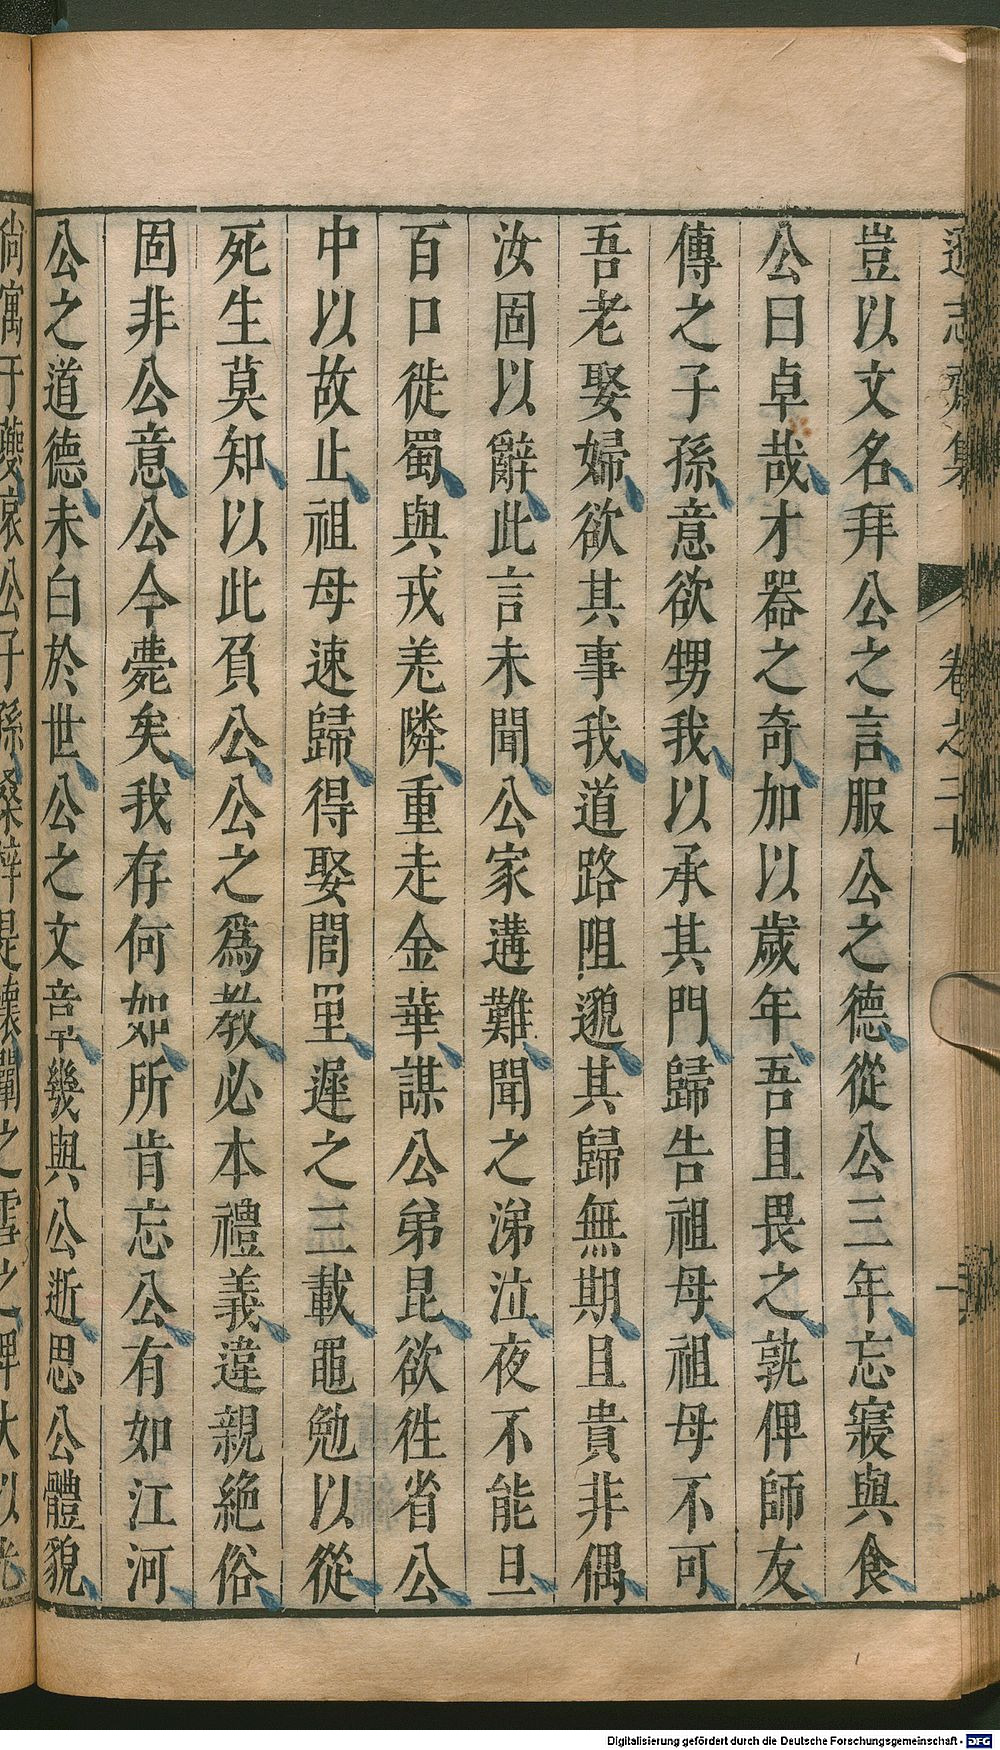 遜志齋集 卷之二十
豈以文名拜公之言服公之德從公三年忘寢與食
公曰卓哉才器之奇加以歲年吾且畏之孰俾師友
傳之子孫意欲甥我以承其門歸告祖母祖母不可
吾老娶婦欲其事我道路阻邈其歸無期且貴非偶
汝固以辭此言未聞公家遘難聞之涕泣夜不能旦
百口徙蜀與戎羌隣重走金華謀公弟昆欲徃省公
中以故止祖母速歸得娶閭里遲之三載黽勉以從
死生莫知以此負公公之爲教必本禮義違親絶俗
固非公意公今薨矣我存何如所肯忘公有如江河
公之道德未白於世公之文章幾與公逝思公體貌
Digitalisierung gefördert durch die Deutsche Forschungsgemeinschaft - DFG